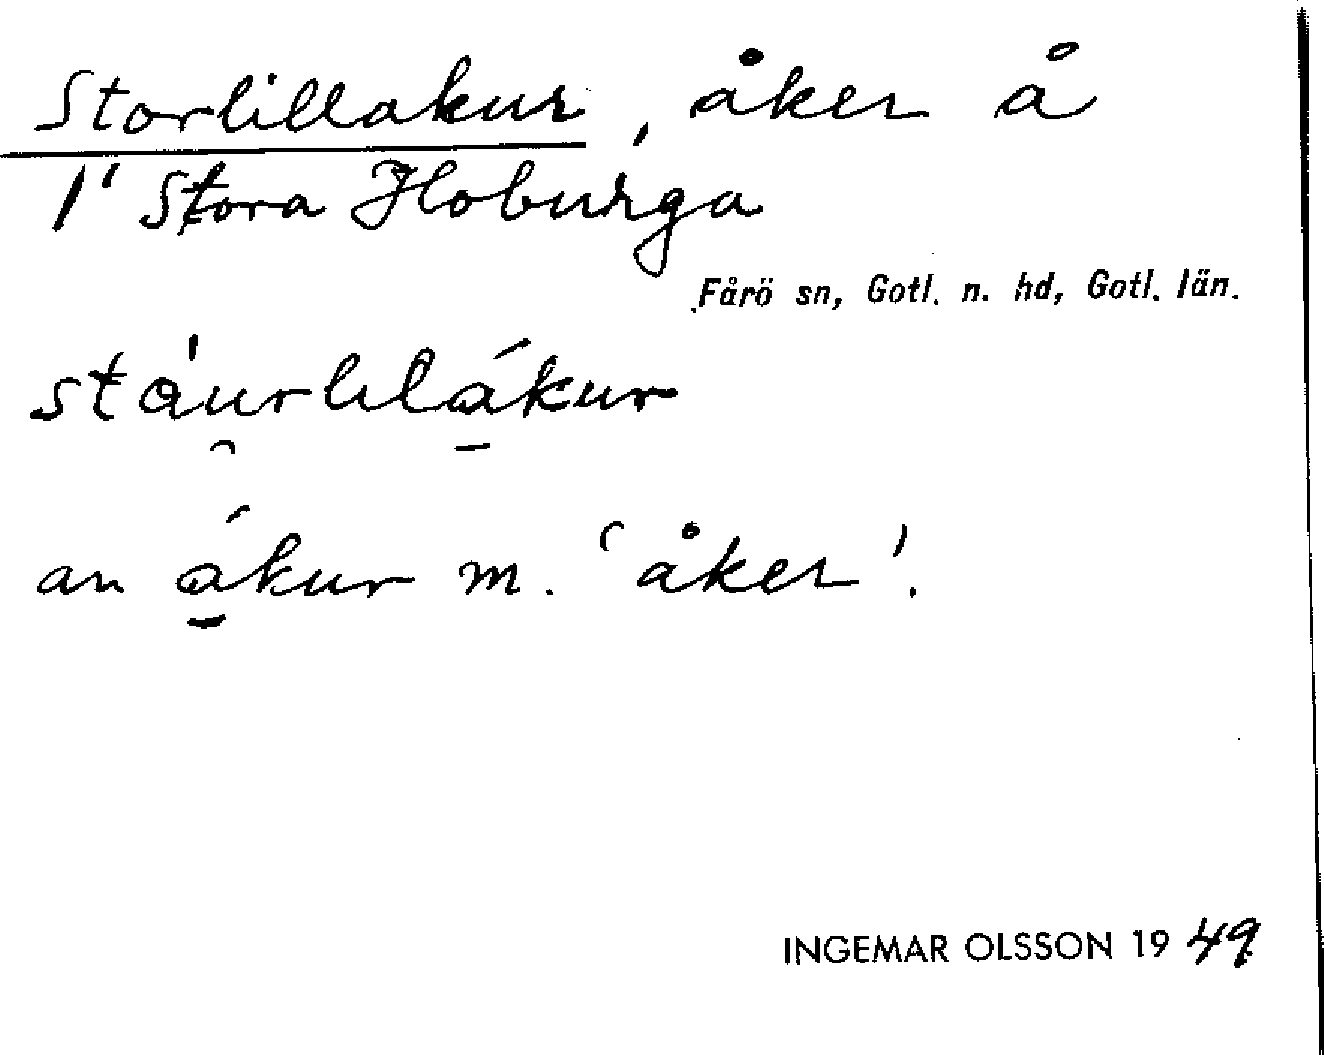 Storlillakur, åker å
1¹ Stora Hoburga
Fårö sn, Gotl. n. hd, Gotl. län.
stau̯rlılákur
an ákur m. ‘åker’.
INGEMAR OLSSON 1949